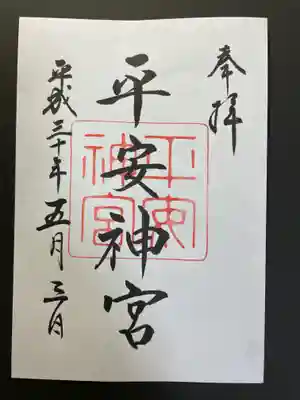 奉拝
平安神宮
平安神宮
平成三十年五月三日